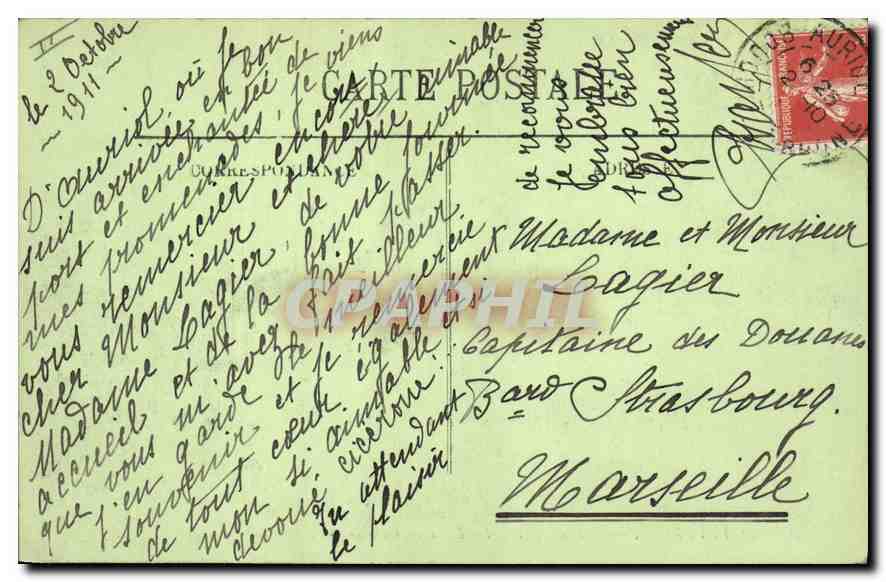 le 2 Octobre
~ 1911 ~
CARTE POSTALE
CORRESPONDANCE
D'auriol où je
suis arrivée en bon
port et enchantée de
mes promenades, je viens
vous remercier encore
cher Monsieur et chère
Madame Lagier, de votre aimable
accueil et de la bonne journée
que vous m'avez fait passer.
J'en garde le meilleur
souvenir et je remercie
de tout cœur également
mon si aimable et si
dévoué cicerone.
En attendant
le plaisir
de recommencer
je vous
embrasse
tous bien
affectueusement
Madame et Monsieur
Lagier
Capitaine des Douanes
Bard Strasbourg.
Marseille
CPAPHIL
REPUBLIQUE FRANÇAISE
AURIOL